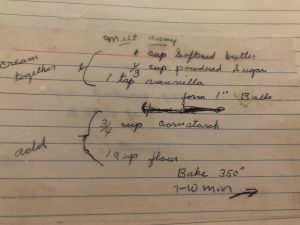 Melt away
cream together
1 cup softned butter
1/3 cup powdered sugar
1 tsp vannilla
form 1" Balls
add
3/4 cup cornstarch
1 cup flour
Bake 350°
7-10 min →